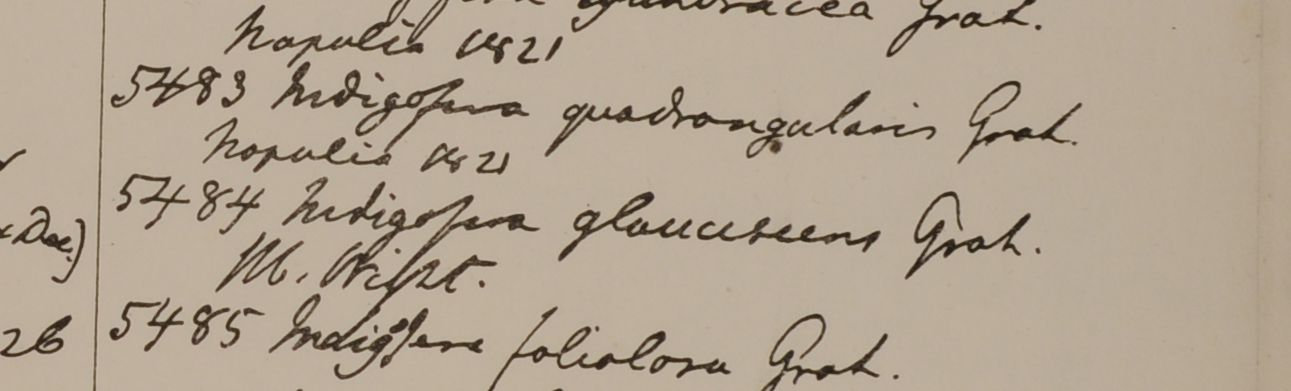 Grah.
Napalia 1821
5483 Indigofera quadrangularis Grah.
Napalia 1821
Dec.)
5484 Indigofera glaucescens Grah.
M. Wight.
26
5485 Indigofera foliolosa Grah.